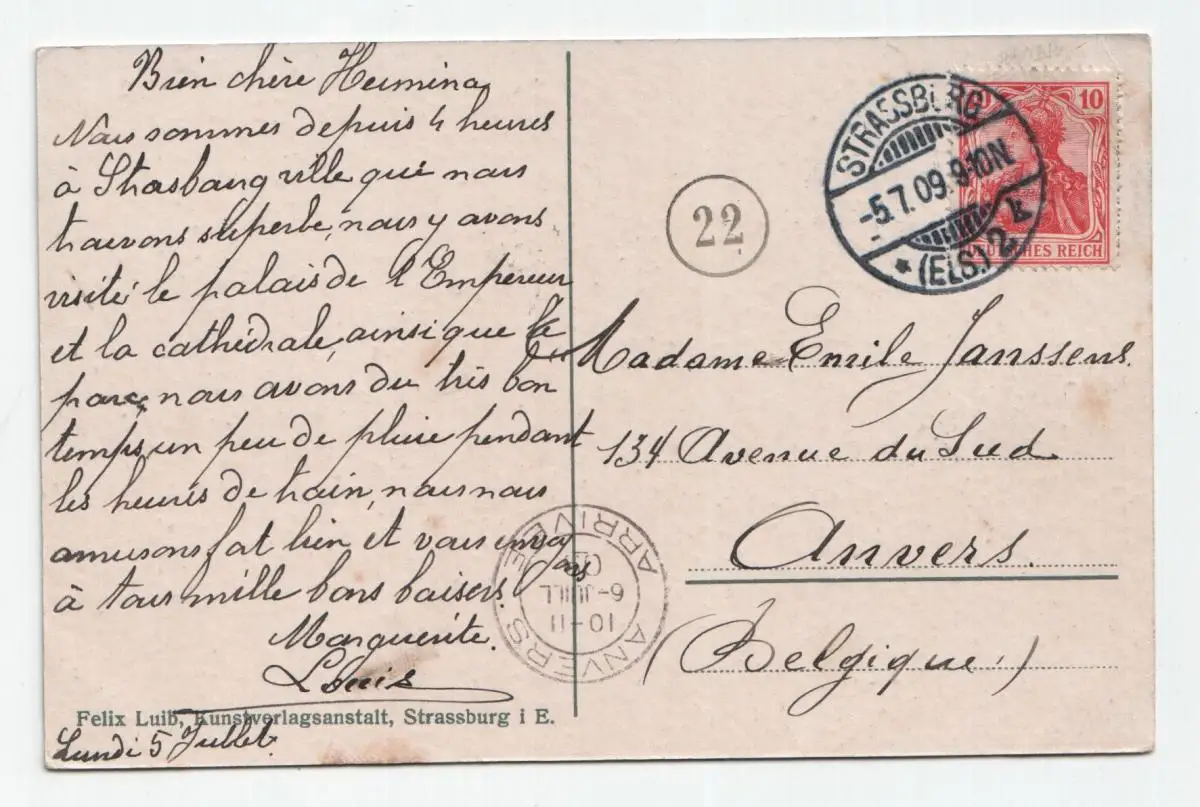 Bien chère Hermina
Nous sommes depuis 4 heures
à Strasbourg ville que nous
trouvons superbe, nous y avons
visité le palais de l'Empereur
et la cathédrale, ainsi que le
parc, nous avons du très bon
temps, un peu de pluie pendant
les heures de train, nous nous
amusons fort bien et vous envoyons
à tous mille bons baisers.
Marguerite.
Louis
Felix Luib, Kunstverlagsanstalt, Strassburg i E.
Lundi 5 Juillet.
STRASSBURG
-5.7.09.9-10N.
* (ELS.) 2 k
10
DEUTSCHES REICH
22
Madame Emile Janssens.
134 Avenue du Sud
Anvers.
(Belgique.)
ANVERS
10-11
6-JUILL
09
ARRIVEE